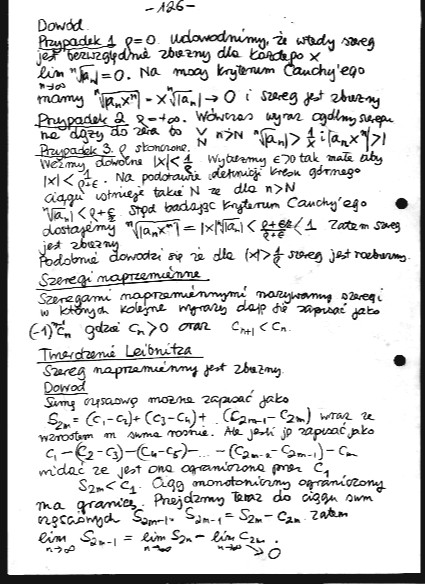 -126-
Dowód.
Przypadek 1 ρ=0. Udowodnimy, że wtedy szereg
jest bezwzględnie zbieżny dla każdego x
lim ⁿ√|aₙ| = 0. Na mocy kryterium Cauchy'ego
n→∞
mamy ⁿ√|aₙxⁿ| = x ⁿ√|aₙ| → 0 i szereg jest zbieżny
Przypadek 2 ρ=+∞. Wówczas wyraz ogólny szeregu
nie dąży do zera bo ∨ n>N ⁿ√|aₙ| > 1/x i |aₙxⁿ|>1
N
Przypadek 3. ρ skończone.
Weźmy dowolne |x|<1/ρ. Wybierzmy ε>0 tak małe aby
|x| < 1/ρ+ε. Na podstawie definicji kresu górnego
ciągu istnieje takie N że dla n>N
ⁿ√|aₙ| < ρ+ε stąd badając kryterium Cauchy'ego
dostajemy ⁿ√|aₙxⁿ| = |x| ⁿ√|aₙ| < < 1 zatem szereg
jest zbieżny
Podobnie dowodzi się że dla |x|>1/ρ szereg jest rozbieżny.
Szeregi naprzemienne
Szeregami naprzemiennymi nazywamy szeregi
w których kolejne wyrazy dają się zapisać jako
(-1)ⁿcₙ gdzie cₙ>0 oraz cₙ₊₁<cₙ.
Twierdzenie Leibnitza
Szereg naprzemienny jest zbieżny.
Dowód
Sumę częściową można zapisać jako
S₂ₘ = (c₁-c₂)+(c₃-c₄)+ (c₂ₘ₋₁-c₂ₘ) wraz ze
wzrostem m suma rośnie. Ale jeśli ją zapisać jako
c₁-(c₂-c₃)-(c₄-c₅)-...-(c₂ₘ₋₂-c₂ₘ₋₁)-cₘ
widać że jest ona ograniczona przez c₁
S₂ₘ<c₁. Ciąg monotoniczny ograniczony
ma granicę. Przejdźmy teraz do ciągu sum
częściowych S₂ₘ₋₁. S₂ₘ₋₁ = S₂ₘ - c₂ₘ zatem
lim S₂ₘ₋₁ = lim S₂ₙ - lim c₂ₙ.
n→∞ n→∞ n→∞ → 0